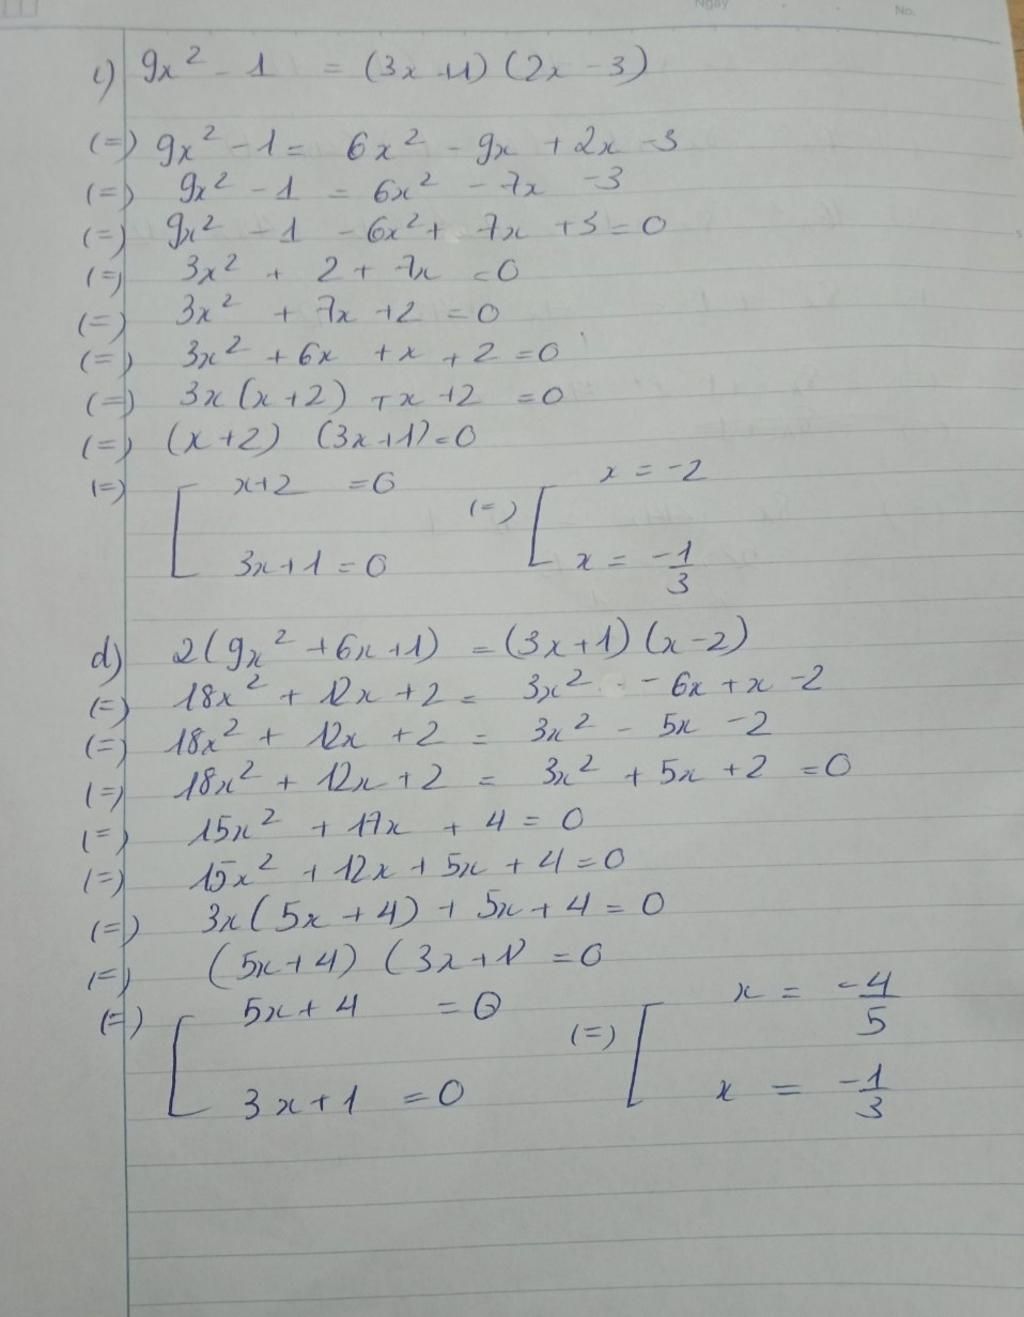 Ngày
No.
c) 9x² - 1 = (3x +1) (2x - 3)
(=) 9x² - 1 = 6x² - 9x + 2x - 3
(=) 9x² - 1 = 6x² - 7x - 3
(=) 9x² - 1 - 6x² + 7x + 3 = 0
(=) 3x² + 2 + 7x = 0
(=) 3x² + 7x + 2 = 0
(=) 3x² + 6x + x + 2 = 0
(=) 3x(x+2) + x + 2 = 0
(=) (x+2) (3x+1) = 0
(=) [ x+2 = 0 (=) [ x = -2
3x+1 = 0 x = -1/3
d) 2(9x² + 6x + 1) = (3x+1) (x-2)
(=) 18x² + 12x + 2 = 3x² - 6x + x - 2
(=) 18x² + 12x + 2 = 3x² - 5x - 2
(=) 18x² + 12x + 2 = 3x² + 5x + 2 = 0
(=) 15x² + 17x + 4 = 0
(=) 15x² + 12x + 5x + 4 = 0
(=) 3x(5x + 4) + 5x + 4 = 0
(=) (5x+4) (3x+1) = 0
(=) [ 5x + 4 = 0 (=) [ x = -4/5
3x + 1 = 0 x = -1/3